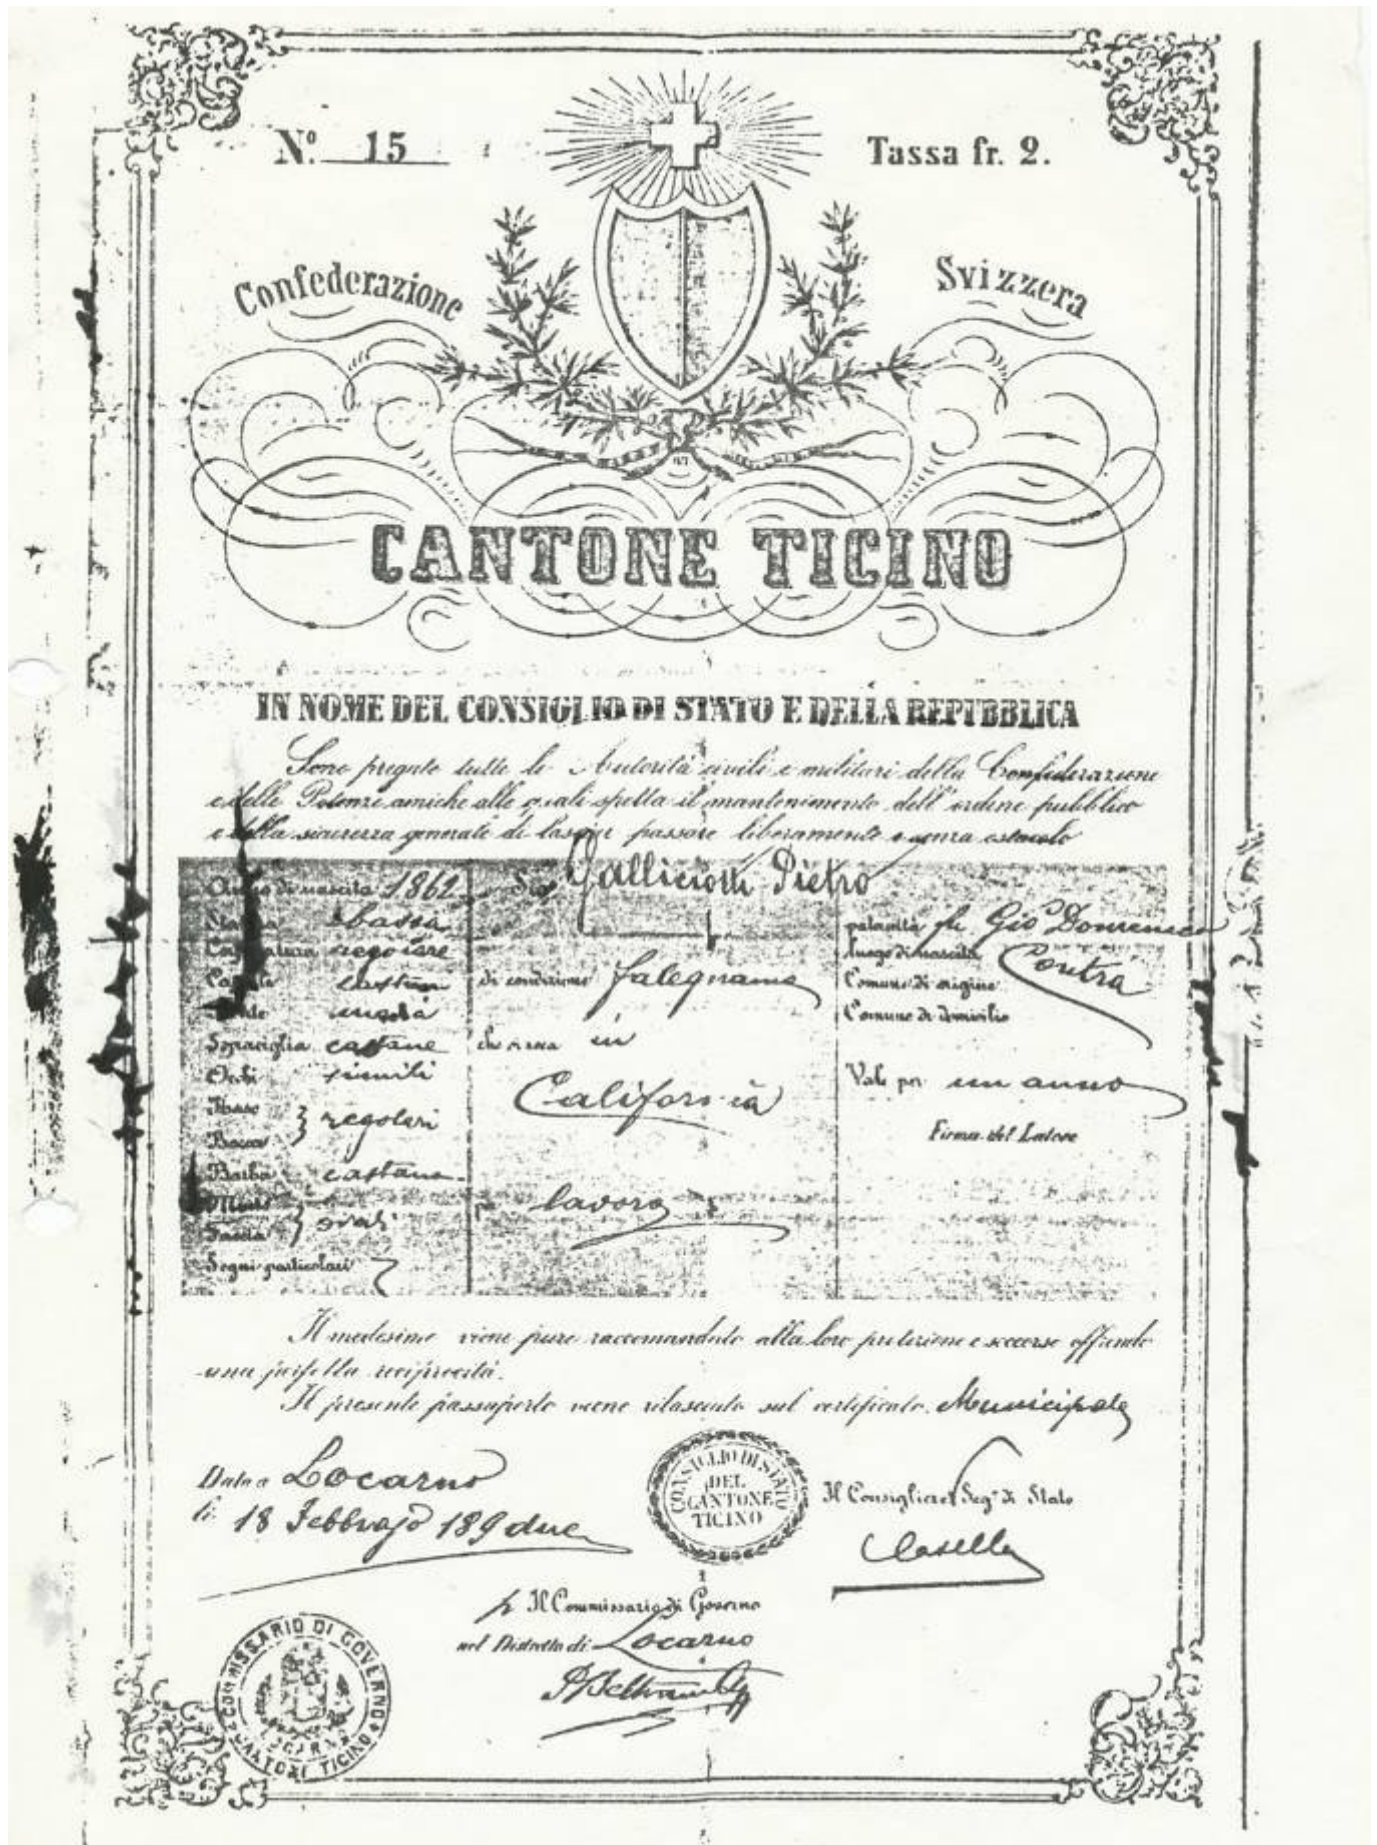 Nº. 15
Tassa fr. 2.
Confederazione Svizzera
CANTONE TICINO
IN NOME DEL CONSIGLIO DI STATO E DELLA REPUBBLICA
Sono pregate tutte le Autorità civili e militari della Confederazione
e delle Potenze amiche alle quali spetta il mantenimento dell'ordine pubblico
e della sicurezza generale di lasciar passare liberamente e senza ostacolo
Anno di nascita 1862
bassa
regolare
Sopraciglia castane
Occhi simili
Naso
Bocca } regolari
Barba castana
Mento
Faccia } ovali
Segni particolari
Sigr Galliciotti Pietro
di condizione falegname
in
California
per lavoro
paternità fu Gio Domenico
luogo di nascita Contra
Comune di origine
Comune di domicilio
Vale per un anno
Firma del Latore
Il medesimo viene pure raccomandato alla loro protezione e soccorso offrendo
una perfetta reciprocità.
Il presente passaporto viene rilasciato sul certificato Municipale
Dato a Locarno
li 18 Febbrajo 189 due
CONSIGLIO DI STATO
DEL
CANTONE
TICINO
Il Consigliere Segº di Stato
Casella
p Il Commissario di Governo
nel Distretto di Locarno
COMMISSARIO DI GOVERNO
CANTONE TICINO